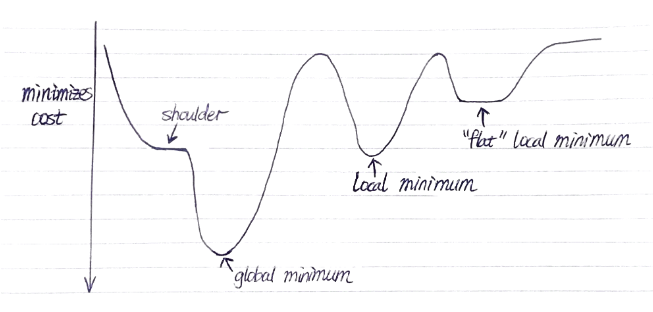 minimizes
cost
shoulder
"flat" local minimum
local minimum
global minimum